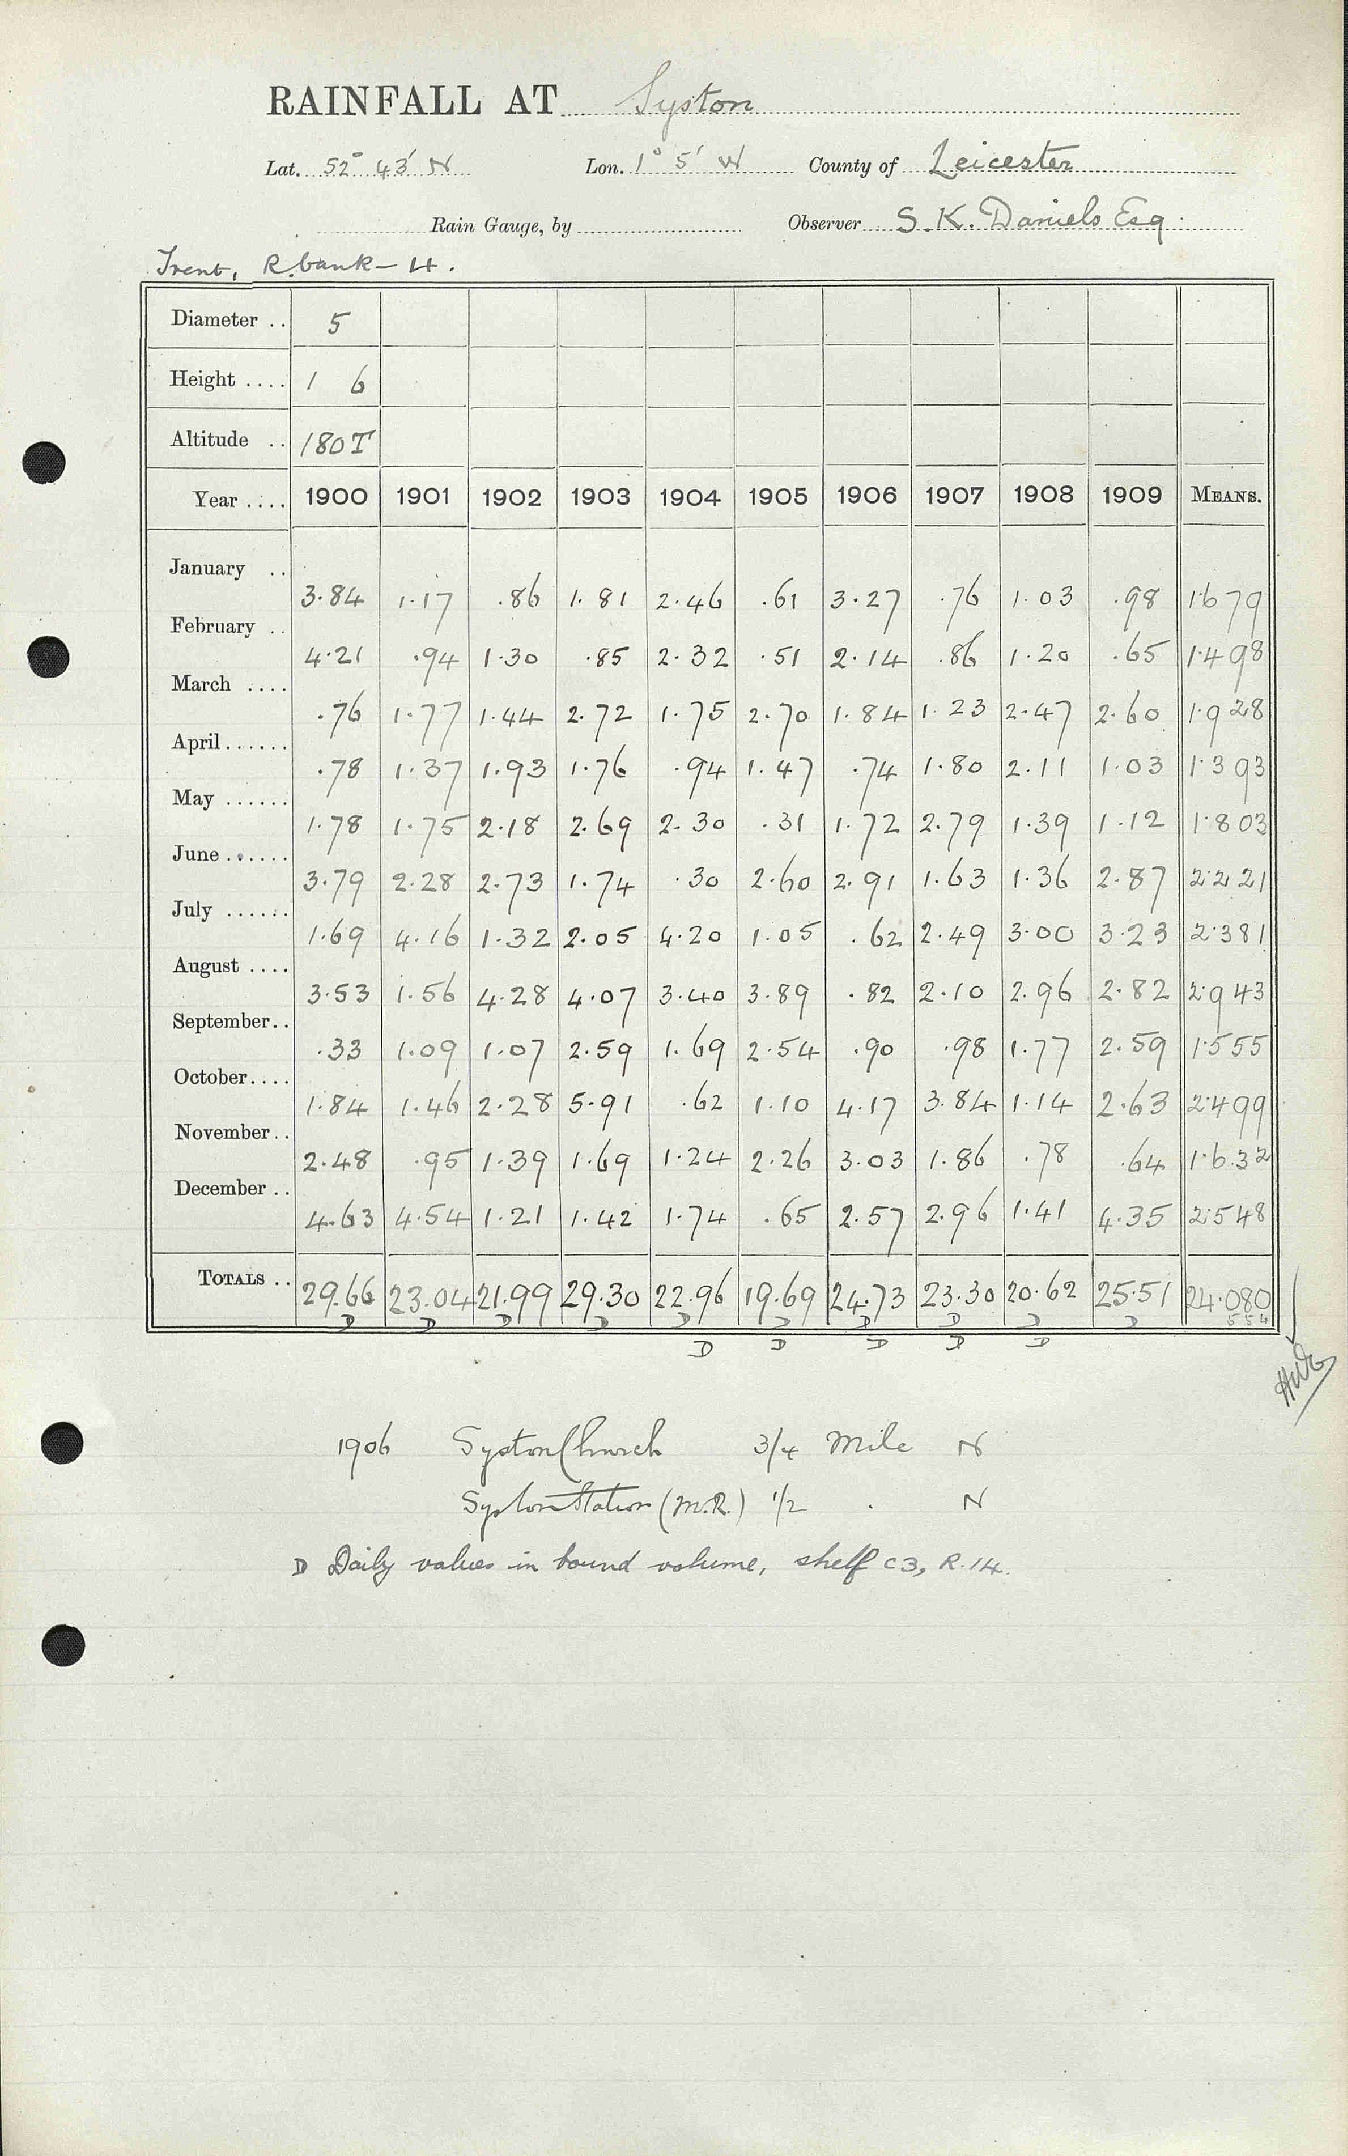 RAINFALL AT Syston
Lat. 52° 43' N Lon. 1° 5' W County of Leicester
Rain Gauge, by Observer S. K. Daniels Esq.
Trent, R. bank - 4.
Diameter .. 5
Height .... 1 6
Altitude .. 180 T
Year .... 1900 1901 1902 1903 1904 1905 1906 1907 1908 1909 MEANS.
January .. 3.84 1.17 .86 1.81 2.46 .61 3.27 .76 1.03 .98 1.679
February .. 4.21 .94 1.30 .85 2.32 .51 2.14 .86 1.20 .65 1.498
March .... .76 1.77 1.44 2.72 1.75 2.70 1.84 1.23 2.47 2.60 1.928
April ...... .78 1.37 1.93 1.76 .94 1.47 .74 1.80 2.11 1.03 1.393
May ...... 1.78 1.75 2.18 2.69 2.30 .31 1.72 2.79 1.39 1.12 1.803
June ...... 3.79 2.28 2.73 1.74 .30 2.60 2.91 1.63 1.36 2.87 2.221
July ...... 1.69 4.16 1.32 2.05 4.20 1.05 .62 2.49 3.00 3.23 2.381
August .... 3.53 1.56 4.28 4.07 3.40 3.89 .82 2.10 2.96 2.82 2.943
September .. .33 1.09 1.07 2.59 1.69 2.54 .90 .98 1.77 2.59 1.555
October .... 1.84 1.46 2.28 5.91 .62 1.10 4.17 3.84 1.14 2.63 2.499
November .. 2.48 .95 1.39 1.69 1.24 2.26 3.03 1.86 .78 .64 1.632
December .. 4.63 4.54 1.21 1.42 1.74 .65 2.57 2.96 1.41 4.35 2.548
TOTALS .. 29.66 23.04 21.99 29.30 22.96 19.69 24.73 23.30 20.62 25.51 24.080
D D D D D D D D D D 554
D D D D D
1906 Syston Church 3/4 Mile N
Syston Station (M.R.) 1/2 . N
D Daily values in bound volume, shelf C3, R.14.